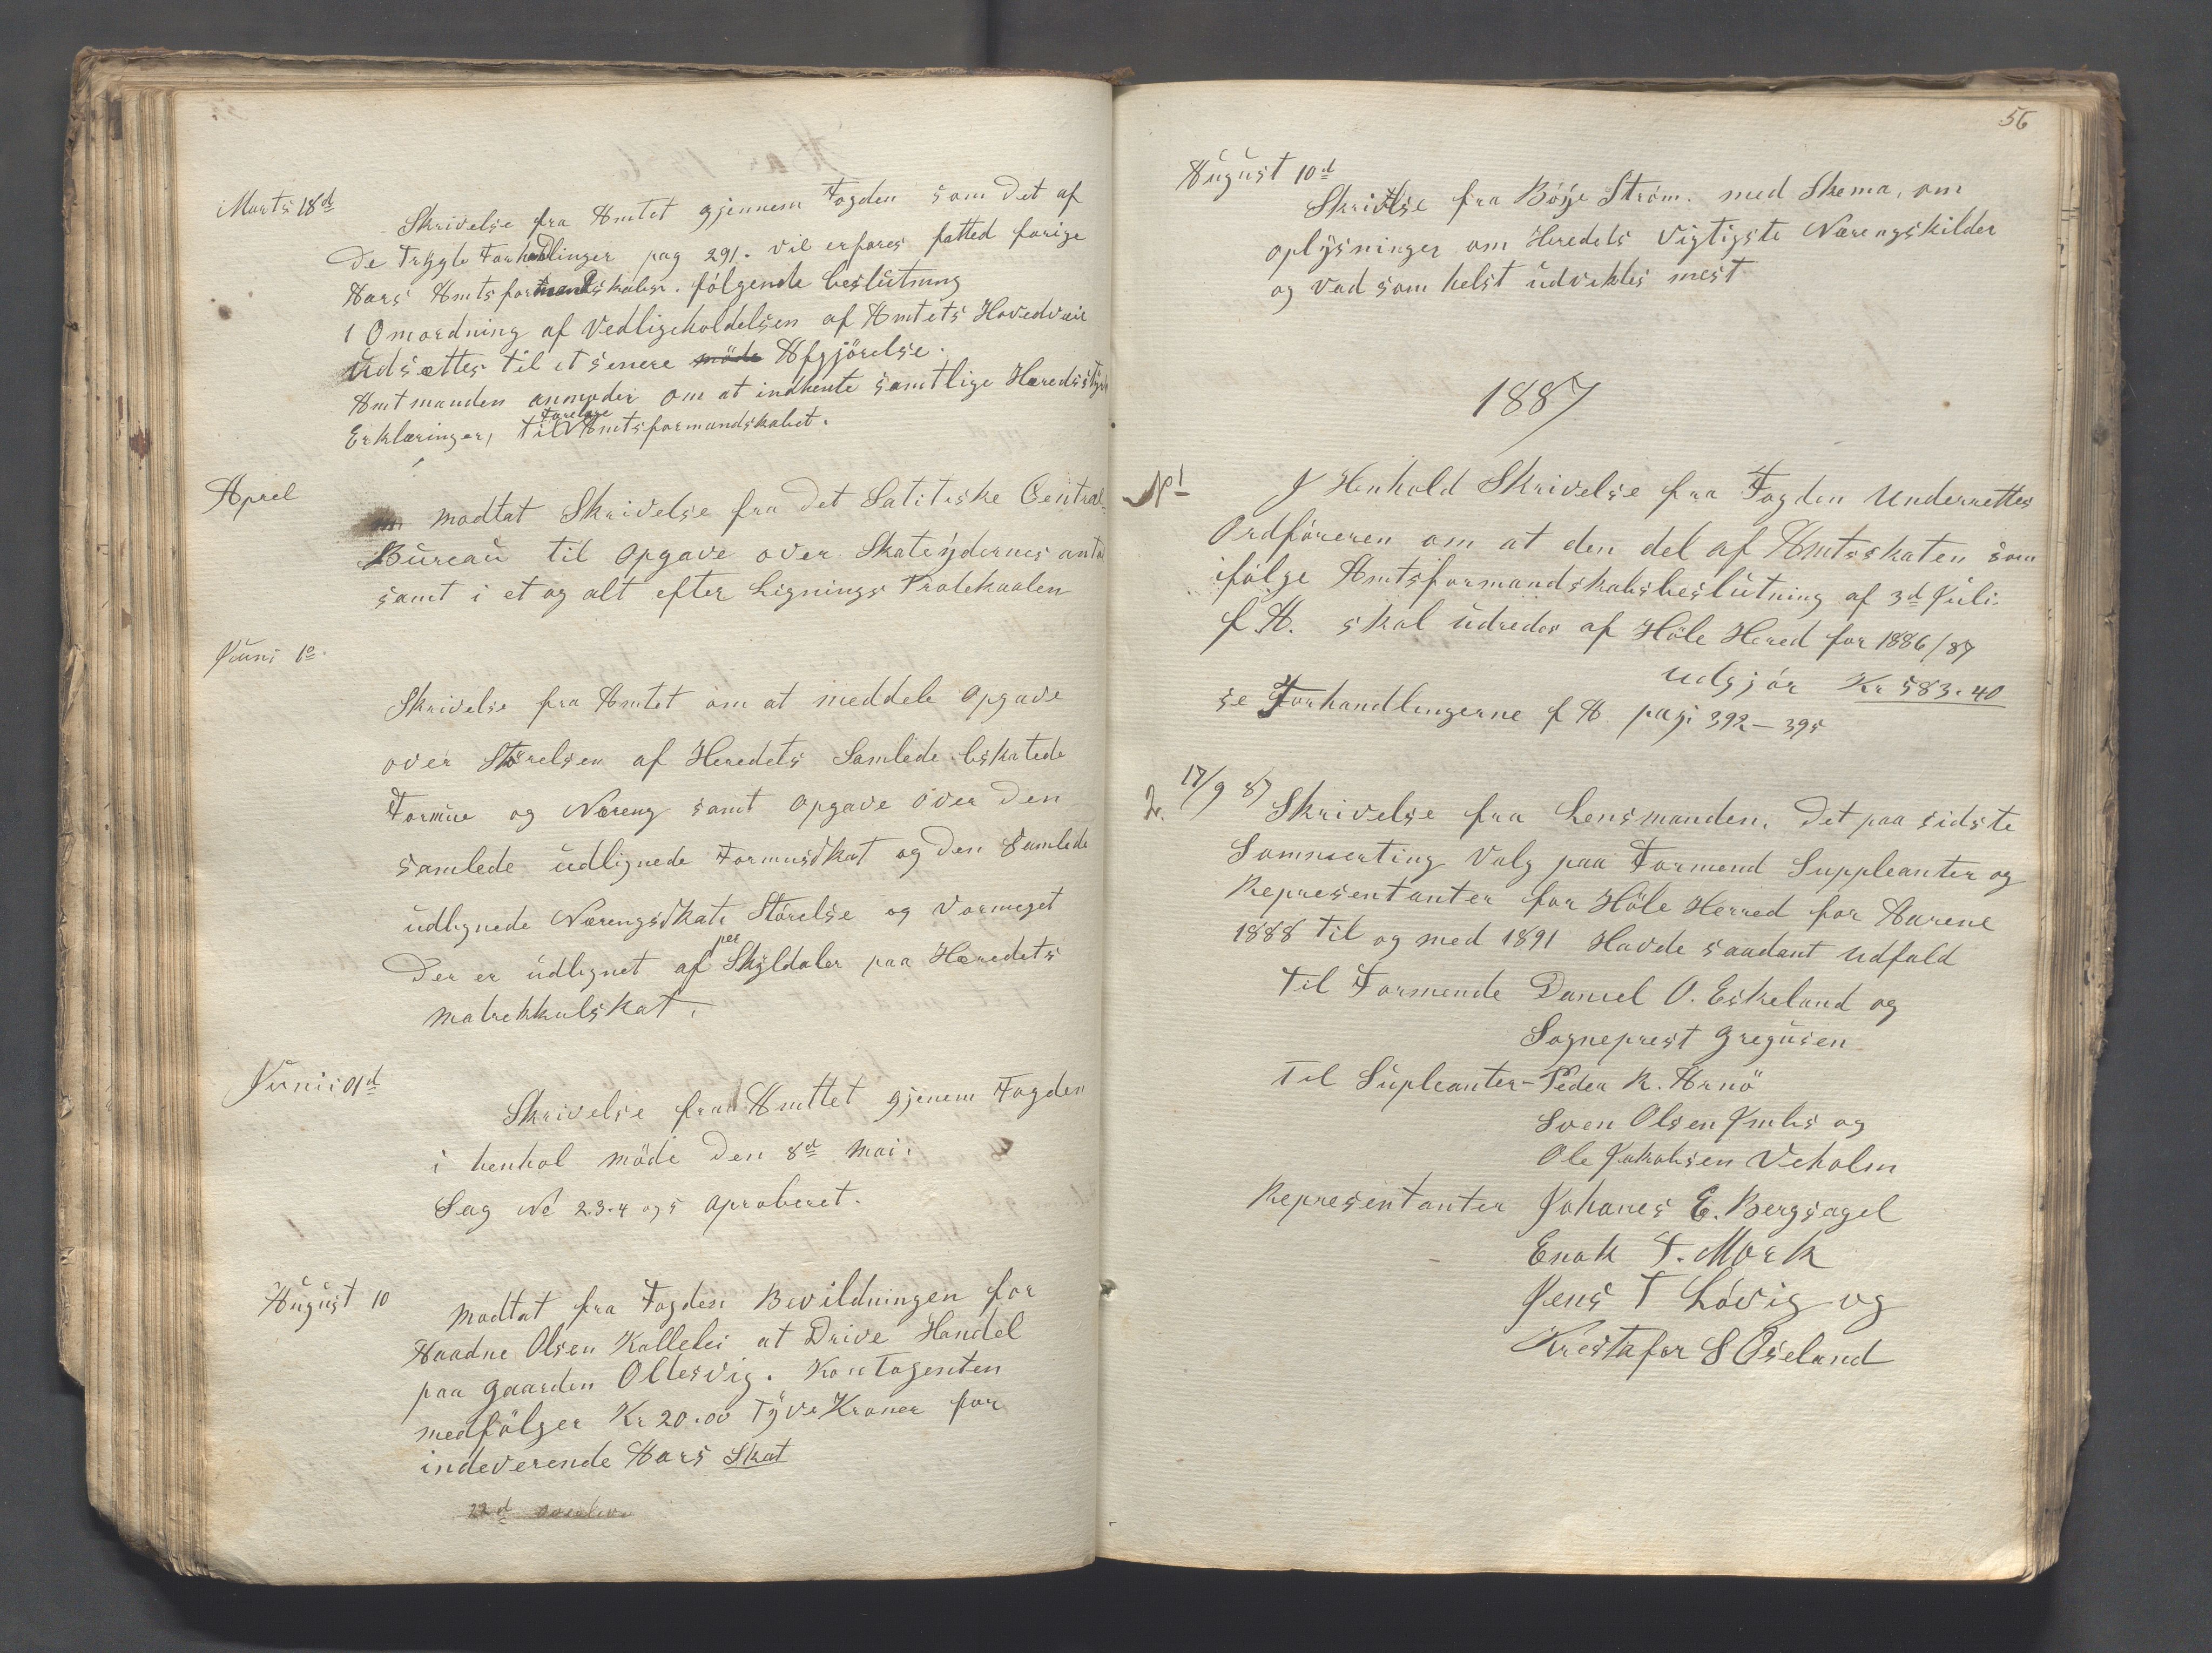 Marts 18d
Skrivelse fra Amtet gjennem Fogden som det af
de Trygte Forhandlinger pag 291. vil erfares fatted forige
Aars Amtsformendskabs. følgende beslutning
1 Omordning af Vedligeholdelsen af Amtets Hovedveie
Udsættes til et senere møde Afgjörelse.
Amtmanden anmoder om at indhente samtlige Heredsstyr
Erklæringer, til Forelæge Amtsformandskabet.
April
modtat Skrivelse fra det Satitiske Central-
Bureau til Opgave over Skateydernes antal
samt i et og alt efter Lignings Protekaalen
Juni 1o
Skrivelse fra Amtet om at meddele Opgave
over Störelsen af Heredets Samlede beskatede
Formue og Næreng samt Opgave over Den
samlede udlignede Formusskat og den Samlede
udlignede Nærengsskats Störelse og Vormeget
Der er udlignet af per Skyldaler paa Heredets
matrekkulskat.
Junii 01d
Skrivelse fra Amttet gjenem Fogden
i henhol möde Den 8d Mai.
Sag No 2.3.4 og 5 aproberet.
August 10
Modtat fra Fogden Bevildningen for
Aadne Olsen Kallelei at Drive Handel
paa gaarden Oltesvig. Kontogenten
medfölger Kr 20.00 Tyve Kroner for
indeverende Aars Skat
22d
56
August 10d
Skrivelse fra Böye Ström. med Skema, om
oplysninger om Heredets Vigtigste Nærengskilder
og vad som helst udvikles mest
1887
No 1
I Henhold Skrivelse fra Fogden Underrettes
Ordföreren om at den del af Amtsskaten som
ifölge Amtsformandskabsbeslutning af 3d Juli
f. A. skal udredes af Höle Hered for 1886/87
udgjör Kr 583.40
se Forhandlingerne f A pag: 392-395
2. 17/9 87
Skrivelse fra Lensmanden. Det paa sidste
Sommerting Valg paa Formend Suppleanter og
Representanter for Höle Herred for Aarene
1888 til og med 1891 Havde saadant udfald
Til Formende Daniel O. Eskeland og
Sogneprest Gregusen
Til Supleanter- Peder R. Arnö
Sven Olsen Imbs og
Ole Jakobsen Veholm
Representanter Johanes E. Bergsagel
Enok T. Mork
Jens T Lövig og
Krestofer S Öseland